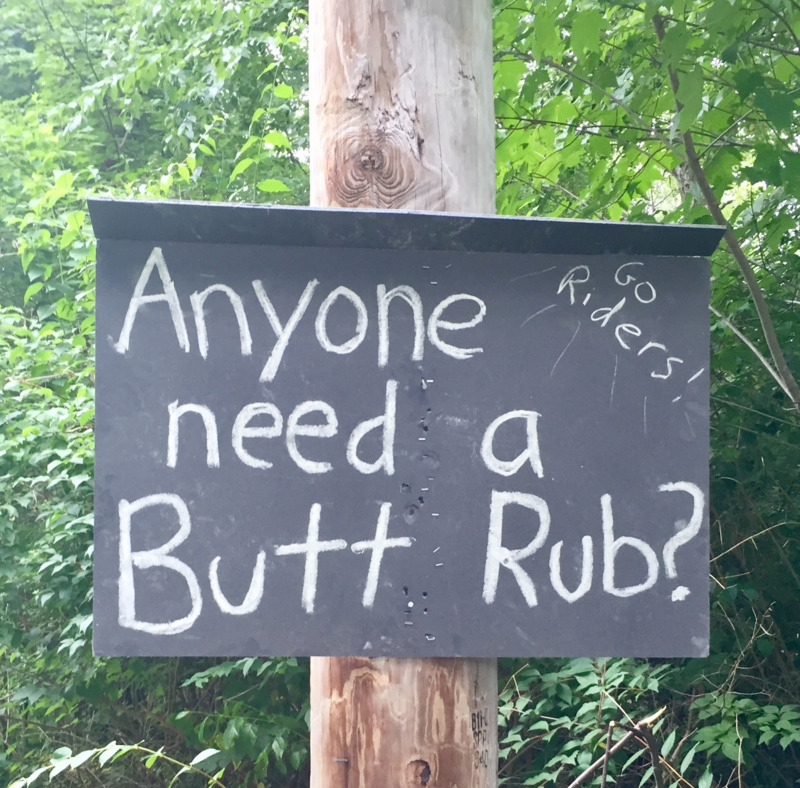 Anyone
need a
Butt Rub?
Go
Riders!